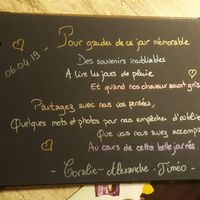 06.04.19
Pour garder de ce jour mémorable
Des souvenirs inoubliables
A lire les jours de pluie
Et quand nos cheveux seront gris
Partagez avec nous vos pensées,
Quelques mots et photos pour nous empêcher d'oublier
Que vous nous avez accompa
Au cours de cette belle journée.
- Coralie - Alexandre - Timéo -